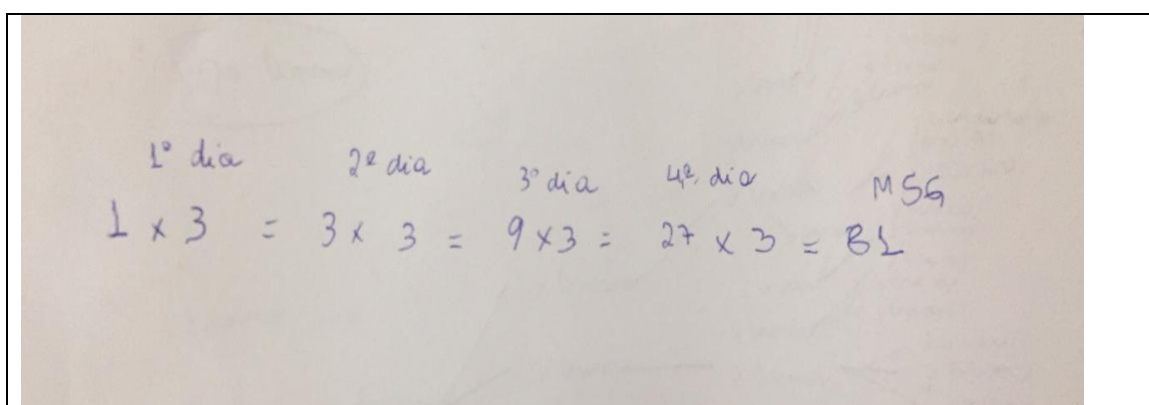 1º dia 2º dia 3º dia 4º dia MSG
1 x 3 = 3 x 3 = 9 x 3 = 27 x 3 = 81